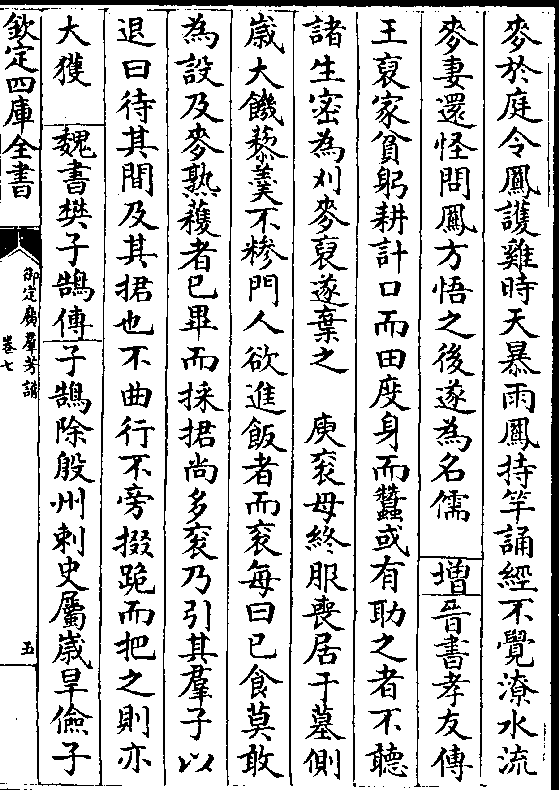 麥於庭令鳳護雞時天暴雨鳳持竿誦經不覺潦水流
麥妻還怪問鳳方悟之後遂為名儒　增晉書孝友傳
王裒家貧躬耕計口而田度身而蠶或有助之者不聽
諸生密為刈麥裒遂棄之　庾袞母終服喪居于墓側
歲大饑藜羹不糝門人欲進飯者而袞每曰已食莫敢
為設及麥熟穫者已畢而採捃尚多袞乃引其羣子以
退曰待其間及其捃也不曲行不旁掇跪而把之則亦
大獲　魏書樊子鵠傳子鵠除殷州刺史屬歲旱儉子
欽定四庫全書
御定廣羣芳譜
卷七
五